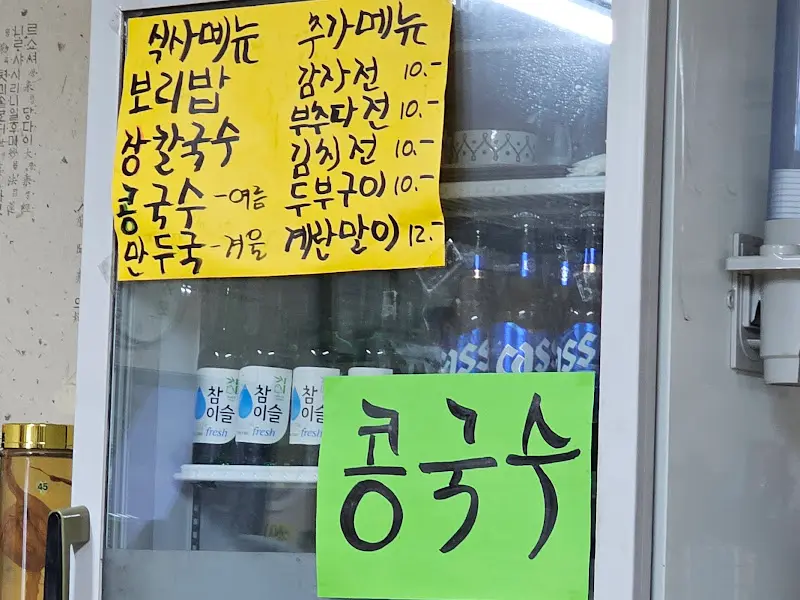 식사메뉴
보리밥
장칼국수
콩국수-여름
만두국-겨울
추가메뉴
감자전 10.-
부추다전 10.-
김치전 10.-
두부구이 10.-
계란말이 12.-
참이슬
fresh
참이슬
fresh
참이슬
fresh
cass
cass
cass
콩국수
45